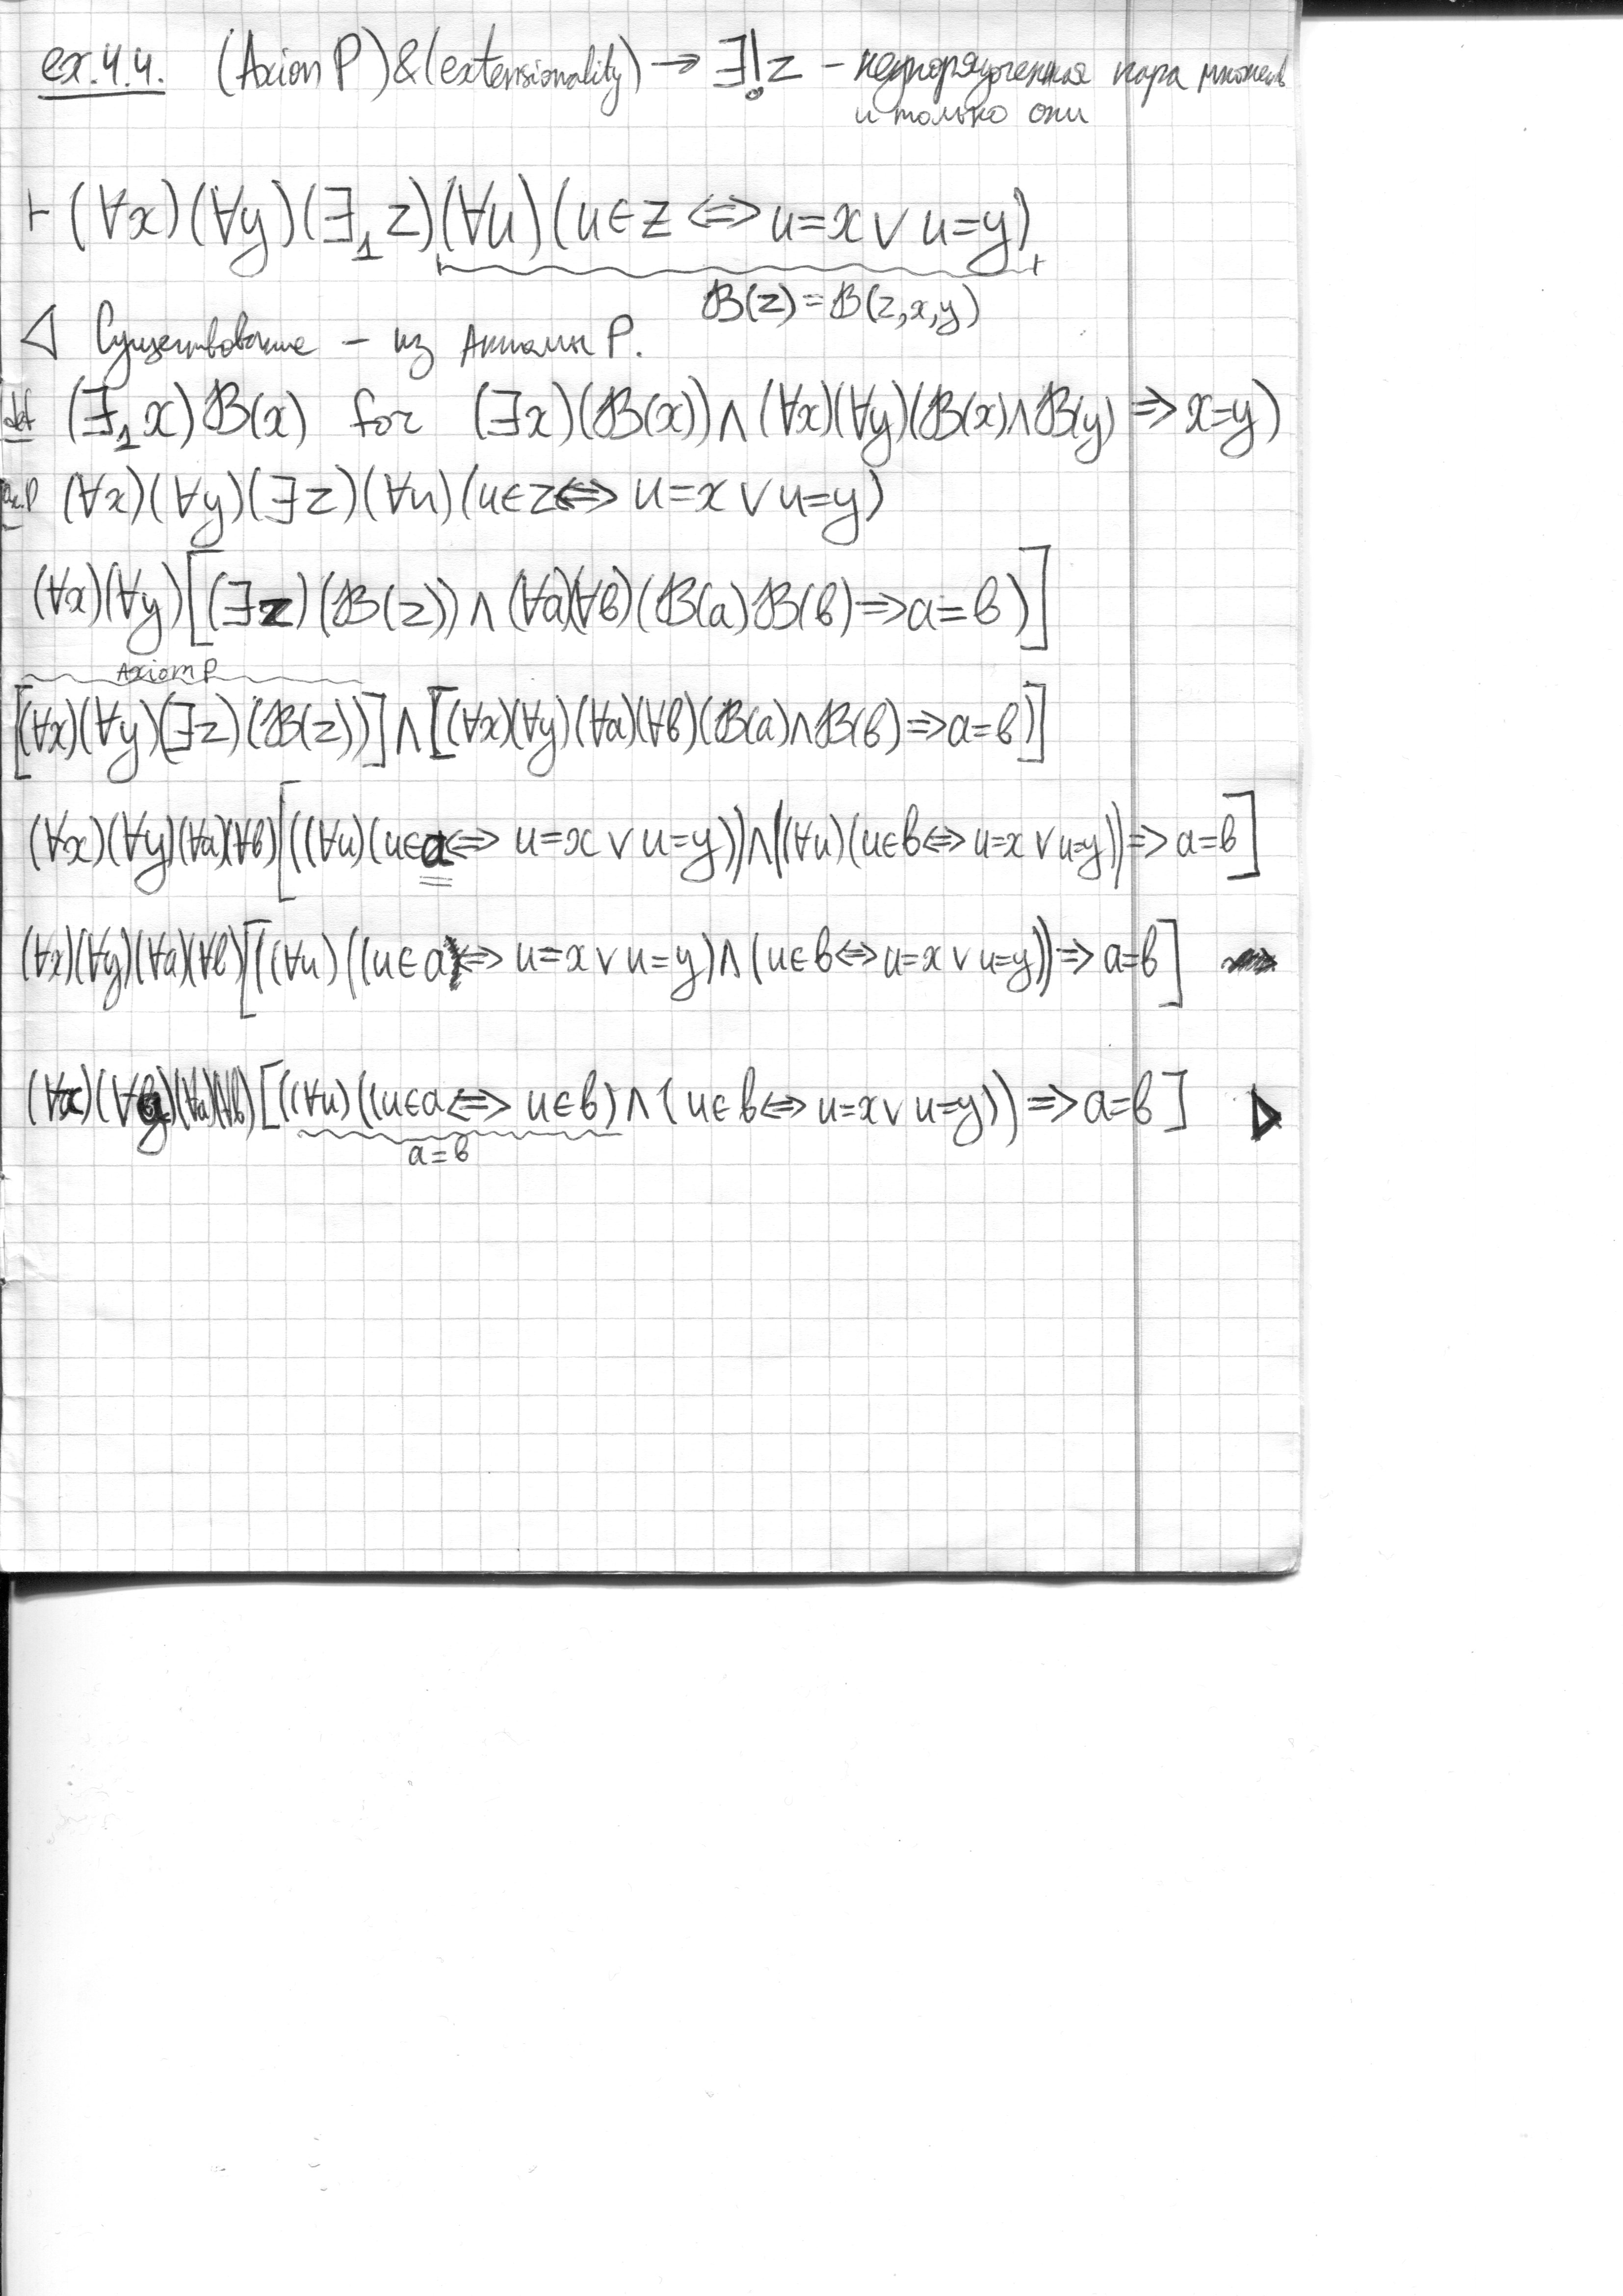 ex.4.4. (Axiom P)&(extensionality) → ∃!z – неупорядоченная пара множеств
и только они
⊢ (∀x)(∀y)(∃₁z)(∀u)(u∈z ⇔ u=x ∨ u=y)
ℬ(z)=ℬ(z,x,y)
◁ Существование – из Аксиомы P.
def (∃₁x)ℬ(x) for (∃x)(ℬ(x)) ∧ (∀x)(∀y)(ℬ(x)∧ℬ(y) ⇒ x=y)
ax.P (∀x)(∀y)(∃z)(∀u)(u∈z ⇔ u=x ∨ u=y)
(∀x)(∀y)[(∃z)(ℬ(z)) ∧ (∀a)(∀b)(ℬ(a)ℬ(b) ⇒ a=b)]
Axiom P
[(∀x)(∀y)(∃z)(ℬ(z))] ∧ [(∀x)(∀y)(∀a)(∀b)(ℬ(a)∧ℬ(b) ⇒ a=b)]
(∀x)(∀y)(∀a)(∀b)[((∀u)(u∈a ⇔ u=x ∨ u=y)) ∧ ((∀u)(u∈b ⇔ u=x ∨ u=y)) ⇒ a=b]
(∀x)(∀y)(∀a)(∀b)[((∀u)((u∈a ⇔ u=x ∨ u=y) ∧ (u∈b ⇔ u=x ∨ u=y)) ⇒ a=b]
(∀x)(∀y)(∀a)(∀b)[((∀u)((u∈a ⇔ u∈b) ∧ (u∈b ⇔ u=x ∨ u=y)) ⇒ a=b] ▷
a=b